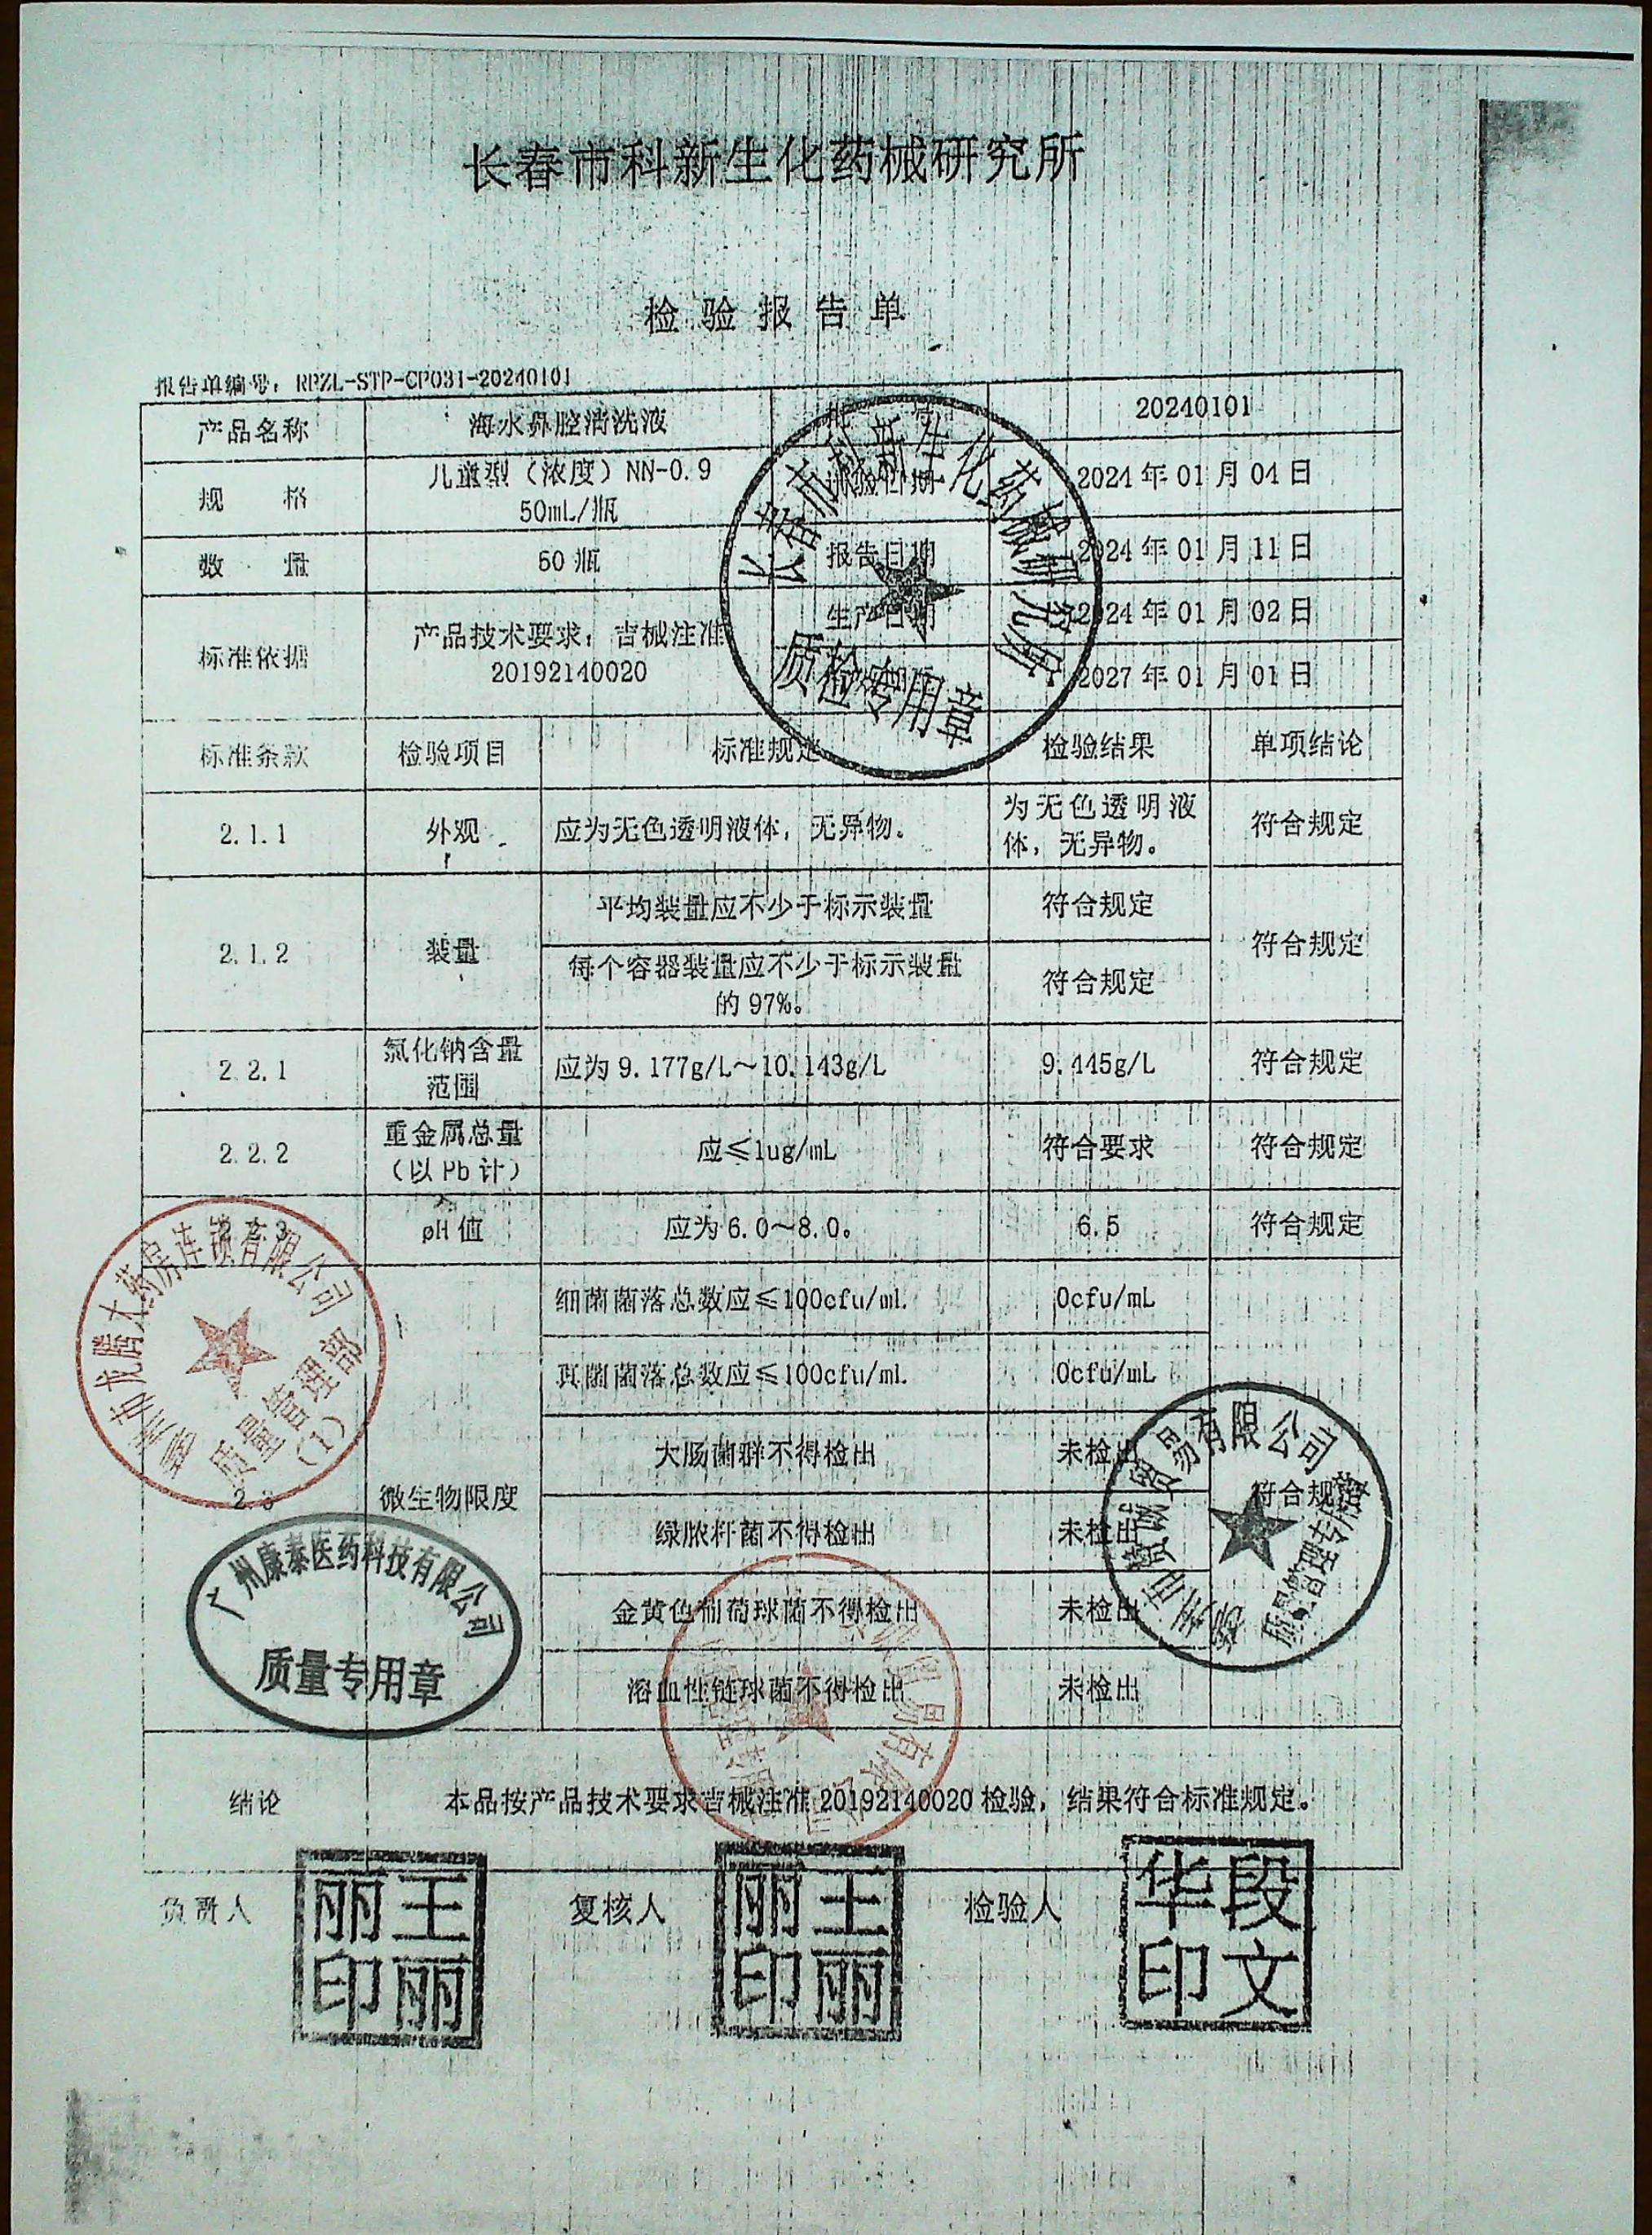 长春市科新生化药械研究所
检验报告单
报告单编号：RPZL-STP-CP031-20240101
产品名称 海水鼻腔清洗液 批号 20240101
规格 儿童型（浓度）NN-0.9 50mL/瓶 试验日期 2024年01月04日
数量 50瓶 报告日期 2024年01月11日
标准依据 产品技术要求：吉械注准 20192140020 生产日期 2024年01月02日
2027年01月01日
标准条款 检验项目 标准规定 检验结果 单项结论
2.1.1 外观 应为无色透明液体，无异物。 为无色透明液体，无异物。 符合规定
2.1.2 装量 平均装量应不少于标示装量 符合规定 符合规定
每个容器装量应不少于标示装量的97%。 符合规定
2.2.1 氯化钠含量范围 应为9.177g/L～10.143g/L 9.445g/L 符合规定
2.2.2 重金属总量（以Pb计） 应≤1ug/mL 符合要求 符合规定
pH值 应为6.0～8.0。 6.5 符合规定
2.3 微生物限度 细菌菌落总数应≤100cfu/mL 0cfu/mL 符合规定
真菌菌落总数应≤100cfu/mL 0cfu/mL
大肠菌群不得检出 未检出
绿脓杆菌不得检出 未检出
金黄色葡萄球菌不得检出 未检出
溶血性链球菌不得检出 未检出
结论 本品按产品技术要求吉械注准20192140020检验，结果符合标准规定。
负责人 王丽丽印 复核人 王丽丽印 检验人 段文华印
长春市科新生化药械研究所
质检专用章
大药房连锁有限公司
质量管理部
(1)
广州康泰医药科技有限公司
质量专用章
贸易有限公司